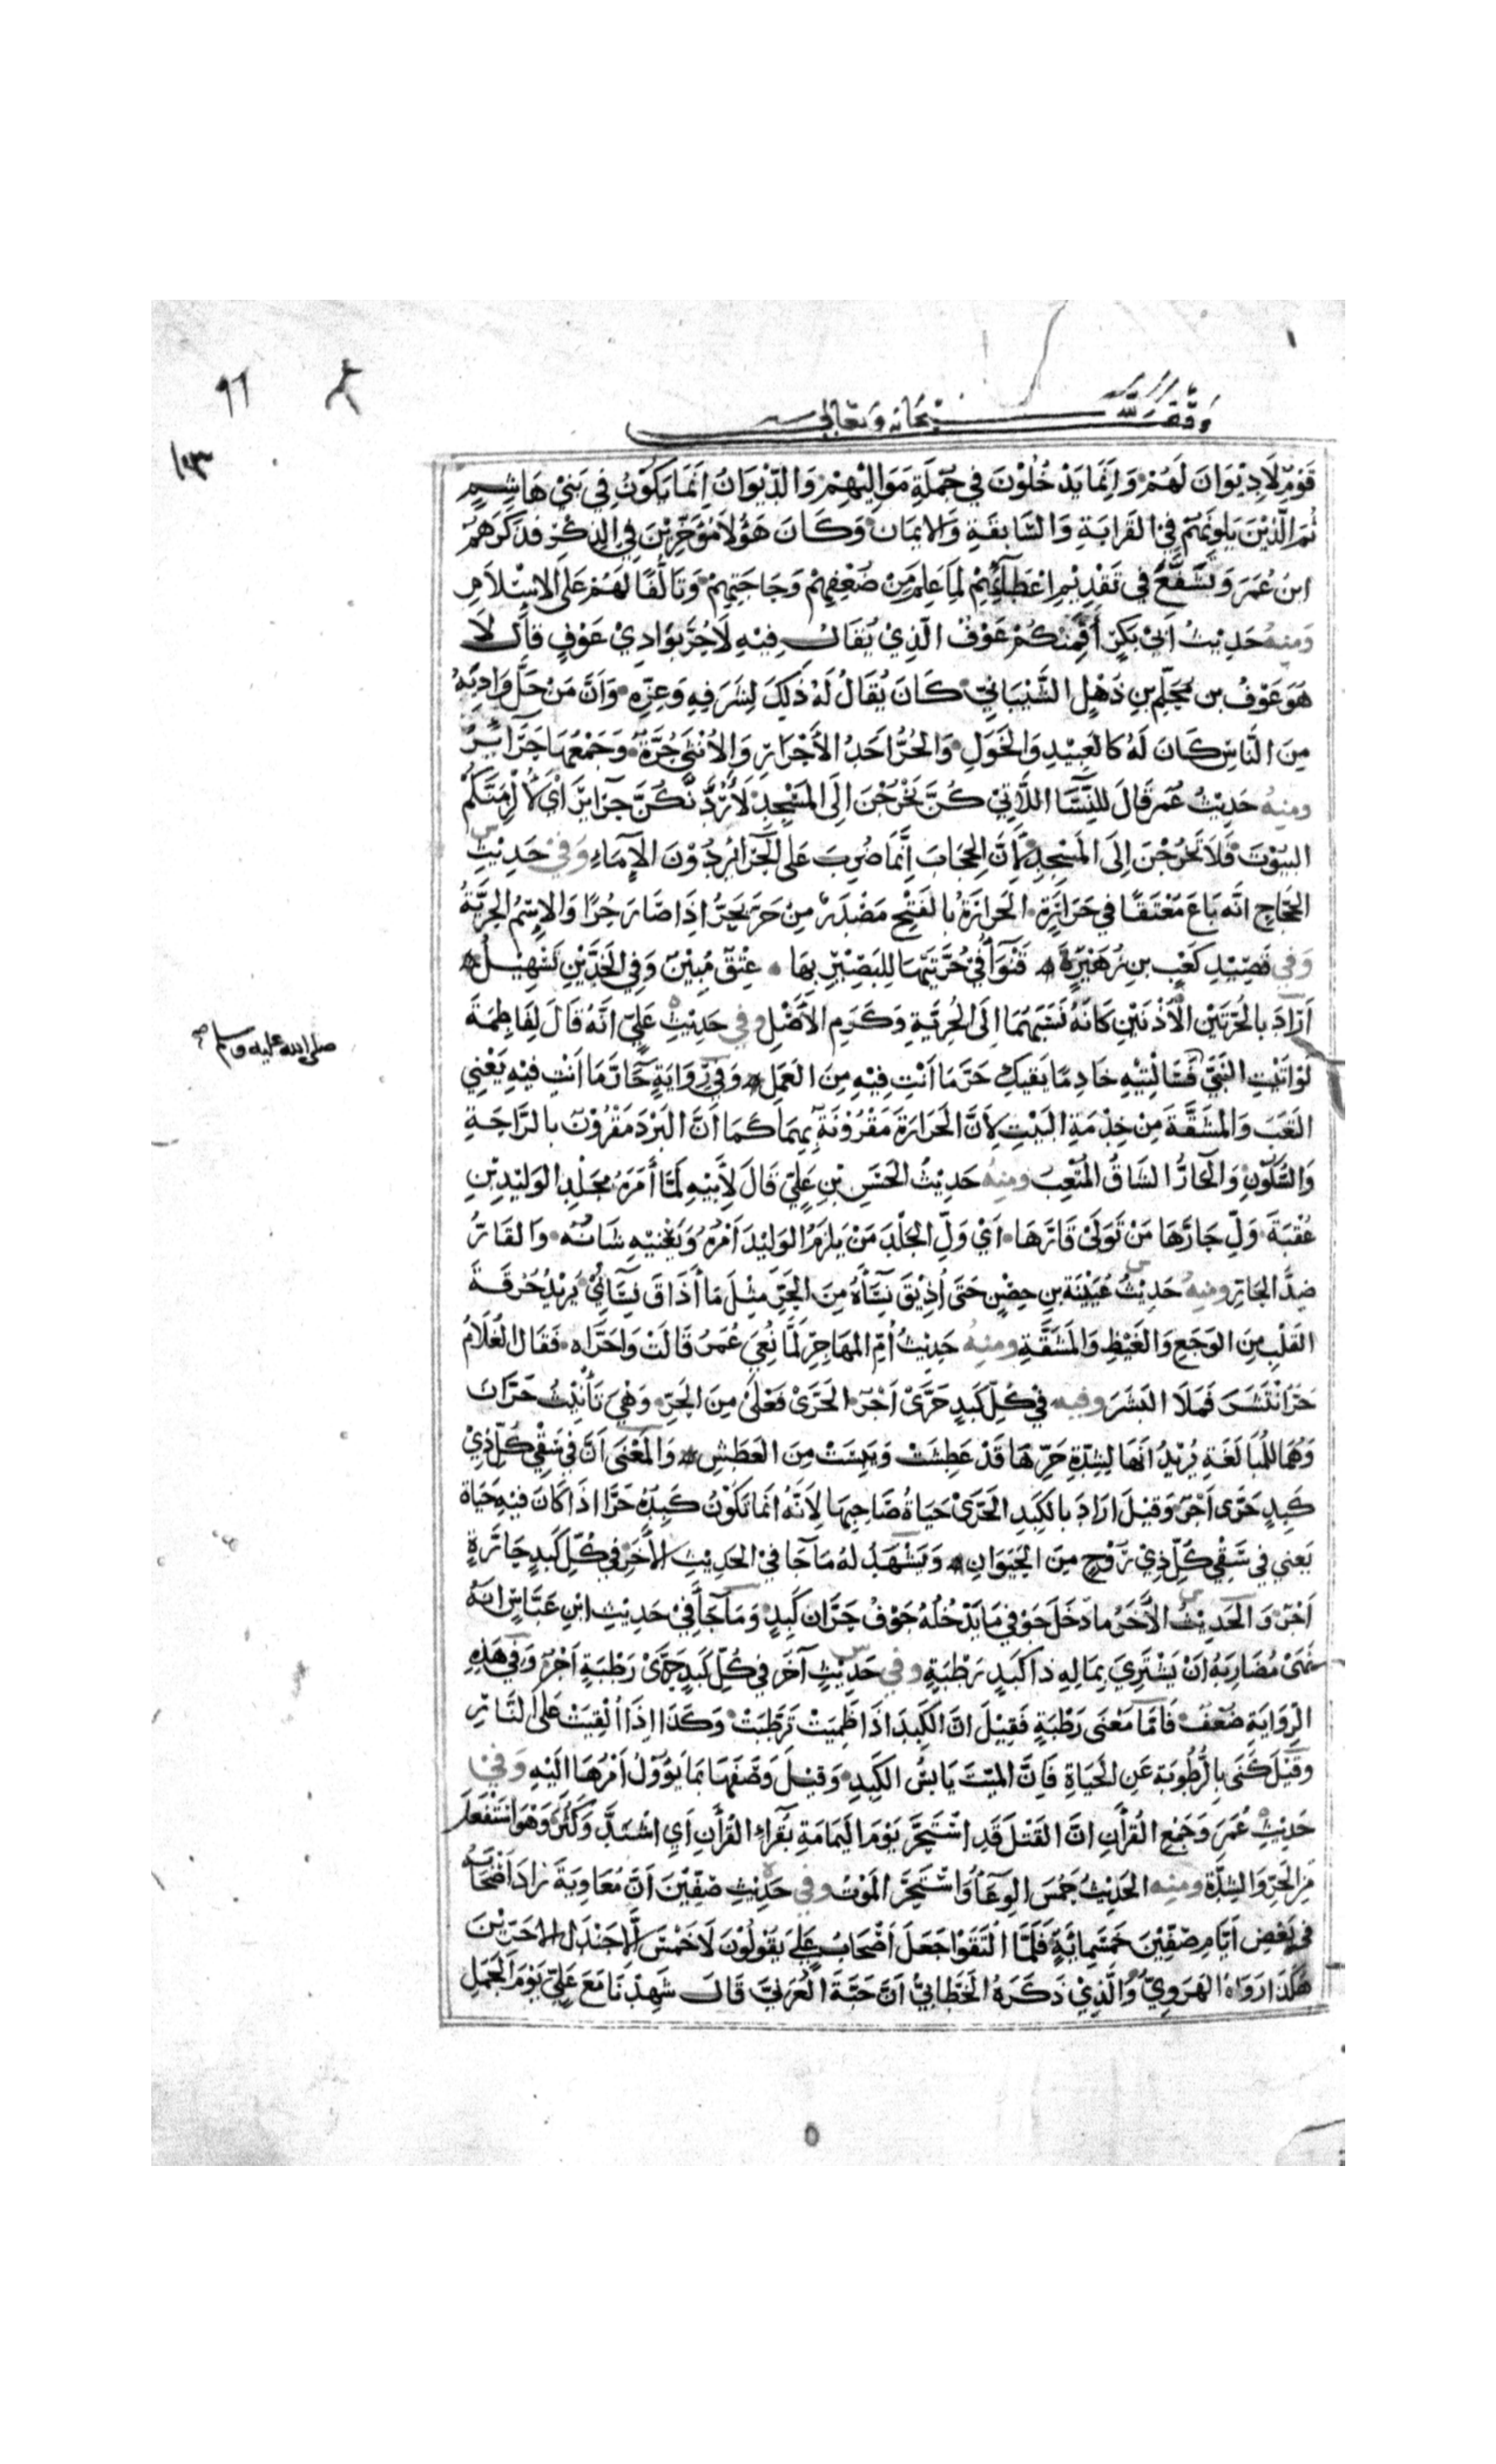 ٩٦
١٠٣
وقف لله سبحانه وتعالى
قَوْمٌ لَا دِيْوَانَ لَهُمْ وَاِنَّمَا يَدْخُلُوْنَ فِي جُمْلَةِ مَوَالِيْهِمْ وَالدِّيْوَانُ اِنَّمَا يَكُوْنُ فِي بَنِيْ هَاشِمٍ
ثُمَّ الَّذِيْنَ يَلُونَهُمْ فِي القَرَابَةِ وَالسَّابِقَةِ وَالاِيمَان وَكَانَ هَؤُلَا مُؤَخَّرِيْنَ فِي الذِكْرِ فذَكَرَهُمْ
ابنُ عُمَرَ وَتَشَفَّعَ فِي تَقْدِيْمِ اِعْطَآئِهِمْ لِمَا عَلِمَ مِنْ ضُعْفِهِمْ وَحَاجَتِهِمْ وَتَألُّفًا لَهُمْ عَلَى الاِسْلَامِ
وَمِنهُ حَدِيْثُ اَبِيْ بَكرٍ أَفَمِنْكُمْ عَوْفٌ الَّذِيْ يُقَالُ فِيْهِ لَا حُرَّ بِوَادِيْ عَوْفٍ قَالَ لَا
هُوَ عَوْفُ بن مُحَلِّمِ بنِ ذُهْلٍ الشَّيْبَانِيّ كَانَ يُقَالُ لَهُ ذَلِكَ لِشَرَفِهِ وَعِزِّهِ وَاَنَّ مَنْ حَلَّ وَادِيَهُ
مِنَ النَّاسِ كَانَ لَهُ كَالعَبِيْدِ وَالخَوَلِ وَالحُرُّ اَحَدُ الأَحْرَارِ وَالاُنْثَى حُرَّةٌ وَجَمْعُهَا حَرَآئِرُ
ومنهُ حَدِيْثُ عُمَرَ قَالَ لِلنِّسَآ اللَّاتِيْ كُنَّ يَخْرُجْنَ اِلَى المَسْجِدِ لَأَرُدَّنَّكُنَّ حَرَائِرَ اَيْ لَأُلْزِمَنَّكُنَّ
البُيُوْتَ فَلَا تَخْرُجْنَ اِلَى المَسْجِدِ لِأَنَّ الحِجَابَ اِنَّمَا ضُرِبَ عَلَى الحَرَائِرِ دُوْنَ الاِمَاءِ وَفِي حَدِيْثِ
الحَجَّاجِ اَنَّهُ بَاعَ مُعْتَقًا فِي حَرَارَةٍ الحَرَارَةُ بالفَتْحِ مَصْدَرٌ مِنْ حَرَّ يَحَرُّ اِذَا صَارَ حُرًّا وَالاِسْمُ الحُرِّيَّةُ
وَفي قَصِيْدِ كَعْبِ بنِ زُهَيْرٍ قَنْوَآءُ فِيْ حُرَّتَيْهَا لِلبَصِيْرِ بِهَا عِتْقٌ مُبِيْنٌ وَفِي الخَدَّيْنِ تَسْهِيْلُ
اَرَادَ بالحُرَّتَيْنِ الأُذُنَيْنِ كَانَهُ نَسَبَهُمَا اِلَى الحُرِيَّةِ وَكَرَمِ الأَصْلِ وفي حَدِيْثِ عَلِيٍّ اَنَّهُ قَالَ لِفَاطِمَةَ
لَوْ اَتَيْتِ النَبِيَّ فَسَاَلْتِيْهِ خَادِمًا يَقيكِ حَرَّ مَا اَنْتِ فِيْهِ مِنَ العَمَلِ وَفِيْ رِوَايَةٍ حَارَّ مَا اَنْتِ فِيْهِ يَعْنِي
صلى الله عليه وسلم صح
التَعَبَ وَالمَشَقَّةَ مِن خِدْمَةِ البَيْتِ لِاَنَّ الحَرَارَةَ مَقْرُوْنَةٌ بِهِمَا كَمَا اَنَّ البَرْدَ مَقْرُوْنٌ بالرَّاحَةِ
وَالسُّكُوْنِ وَالحَارُّ الشَاقُّ المُتْعِبُ ومنهُ حَدِيْثُ الحَسَنِ بْنِ عَلِيٍّ قَالَ لِأَبِيْهِ لَمَّا أَمَرَهُ بِجَلْدِ الوَلِيْدِ بْنِ
عُقْبَةَ وَلِّ حَارَّهَا مَنْ تَوَلَّى قَارَّهَا اَيْ وَلِّ الجَلْدَ مَنْ يَلزَمُ الوَلِيْدَ اَمْرُهُ وَيَعْنِيْهِ شَانُهُ وَالقَارُّ
ضِدُّ الحَارِّ ومنهُ حَدِيْثُ عُيَيْنَةَ بنِ حِصْنٍ حَتَى اُذِيْقَ نِسَآءَهُ مِنَ الحَرِّ مِثْلَ مَا أَذَاقَ نِسَائِيْ يُرِيْدُ حُرْقَةَ
القَلْبِ مِنَ الوَجَعِ وَالغَيْظِ وَالمَشَقَّةِ ومنهُ حَدِيْثُ أُمِّ المُهَاجِرِ لَمَّا نُعِيَ عُمَرُ قَالَتْ وَاحَرَّاه فَقَالَ الغُلَامُ
حَرٌّ انْتَشَرَ فَمَلَا البَشَرَ وفيه فِي كُلِّ كَبِدٍ حَرَّى اَجْرٌ الحَرَّى فَعْلَى مِنَ الحَرِّ وَهْيَ تَأْنِيْثُ حَرَّانَ
وَهُمَا لِلمُبَالَغَةِ يُرِيْدُ اَنَهَا لِشِدَّةِ حَرِّهَا قَدْ عَطِشَتْ وَيَبِسَتْ مِنَ العَطَشِ وَالمَعْنَى اَنَّ فِي سَقْيِ كُلِّ ذِيْ
كَبِدٍ حَرَّى اَجْرٌ وَقِيْلَ ارَادَ بالكَبِدِ الحَرَّى حَيَاةَ صَاحِبِهَا لِاَنَّهُ اِنَمَا تَكُوْنُ كَبِدُهُ حَرَّا اذَا كَانَ فِيْهِ حَيَاة
يَعني فِي سَقْيِ كُلِّ ذِيْ رُوْحٍ مِنَ الحَيَوَانِ وَيَشْهَدُ لَهُ مَا جَا فِيْ الحَدِيْثِ الأَخَرِ فِي كُلِّ كَبِدٍ حَارَّةٍ
اَجْرٌ وَالحَدِيْثُ الأَخَرُ مادَخَلَ جَوْفِي مَا يَدْخُلُ جَوْفُ حَرَّان كَبِدٍ وَمَا جَآ فِيْ حَدِيْثِ ابْنِ عَبَّاسٍ انَهُ
نَهَى مُضَارِبَهُ اَنْ يَشْتَرِيَ بِمَالِهِ ذا كَبِدٍ رَطْبَةٍ وفي حَدِيْثٍ آخَرَ فِي كُلِّ كَبِدٍ حَرَّى رَطْبَةٍ اَجْرٌ وَفِي هَذِهِ
الرِّوَايَةِ ضُعْفٌ فَاَمَّا مَعْنَى رَطْبَةٍ فَقِيْلَ اِنَّ الكَبِدَ اذَا ظَمِيَتْ تَرَطَّبَتْ وَكَذَا اِذَا اُلْقِيَتْ عَلَى النَّارِ
وَقِيْلَ كَنَى بِالرُّطُوبَة عَنِ الحَيَاةِ فَاِنَّ المَيِّتَ يَابِسُ الكَبِدِ وَقِيْلَ وَصَفَهَا بِمَا يَؤُوْلُ اَمْرُهَا اِلَيْهِ وَفي
حَدِيْثِ عُمَرَ وَجَمْعِ القُرْاَنِ اَنَّ القَتْلَ قَدِ اسْتَحَرَّ يَوْمَ اليَمَامَةِ بِقُرَّاءِ القُرْاَنِ اَيِ اشْتَدَّ وَكَثُرَ وَهْوَ اسْتَفْعَلَ
مِنَ الحَرِّ وَالشِدَّةِ ومنه الحَدِيْثُ حَمُسَ الوَغَا وَاسْتَحَرَّ المَوْتُ وفي حَدِيْثِ صِفِّيْنَ اَنَّ مُعَاوِيَةَ زَادَ اَصْحَابَهُ
فِي بَعْضِ اَيَّامِ صِفِّيْنَ خَمْسَمِائَةٍ فَلَمَّا الْتَقَوْا جَعَلَ اَصْحَابُ عَلِيٍّ يَقُوْلُوْنَ لَا خَمْسَ اِلَّا جَنْدَلُ الاحَرِّيْنَ
هَكَذَا رَوَاهُ الهَرَوِيُّ وَالَّذِيْ ذَكَرَهُ الخَطَّابِيُّ اَنَّ حَبَّةَ العُرَنِيَّ قَالَ شَهِدْنَا مَعَ عَلِيٍّ يَوْمَ الجَمَلِ